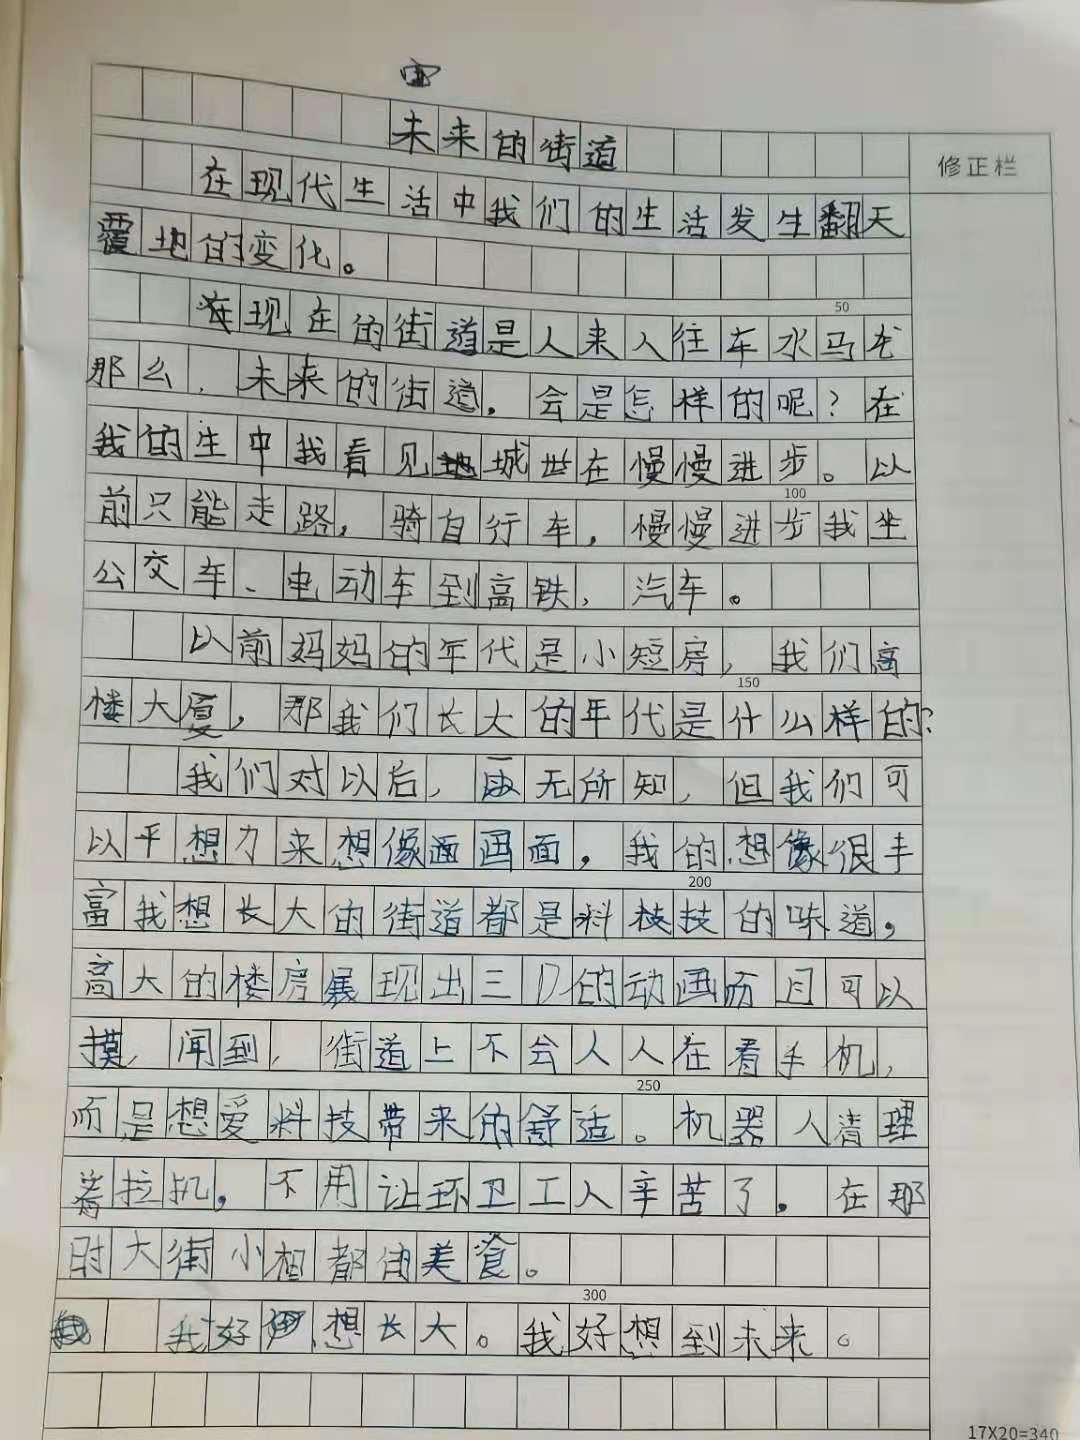 未来的街道
在现代生活中我们的生活发生翻天
覆地的变化。
在现在的街道是人来人往车水马龙
那么,未来的街道,会是怎样的呢?在
我的生中我看见城世在慢慢进步。以
前只能走路,骑自行车,慢慢进步我坐
公交车、电动车到高铁,汽车。
以前妈妈的年代是小短房,我们高
楼大厦,那我们长大的年代是什么样的?
我们对以后,一无所知,但我们可
以平想力来想像画画面,我的想像很丰
富我想长大的街道都是料技技的味道,
高大的楼房展现出三D的动画而且可以
摸,闻到,街道上不会人人在看手机,
而是想爱料技带来的舒适。机器人清理
着拉扒,不用让环卫工人辛苦了。在那
时大街小相都的美食。
我好想长大。我好想到未来。
修正栏
50
100
150
200
250
300
17X20=340